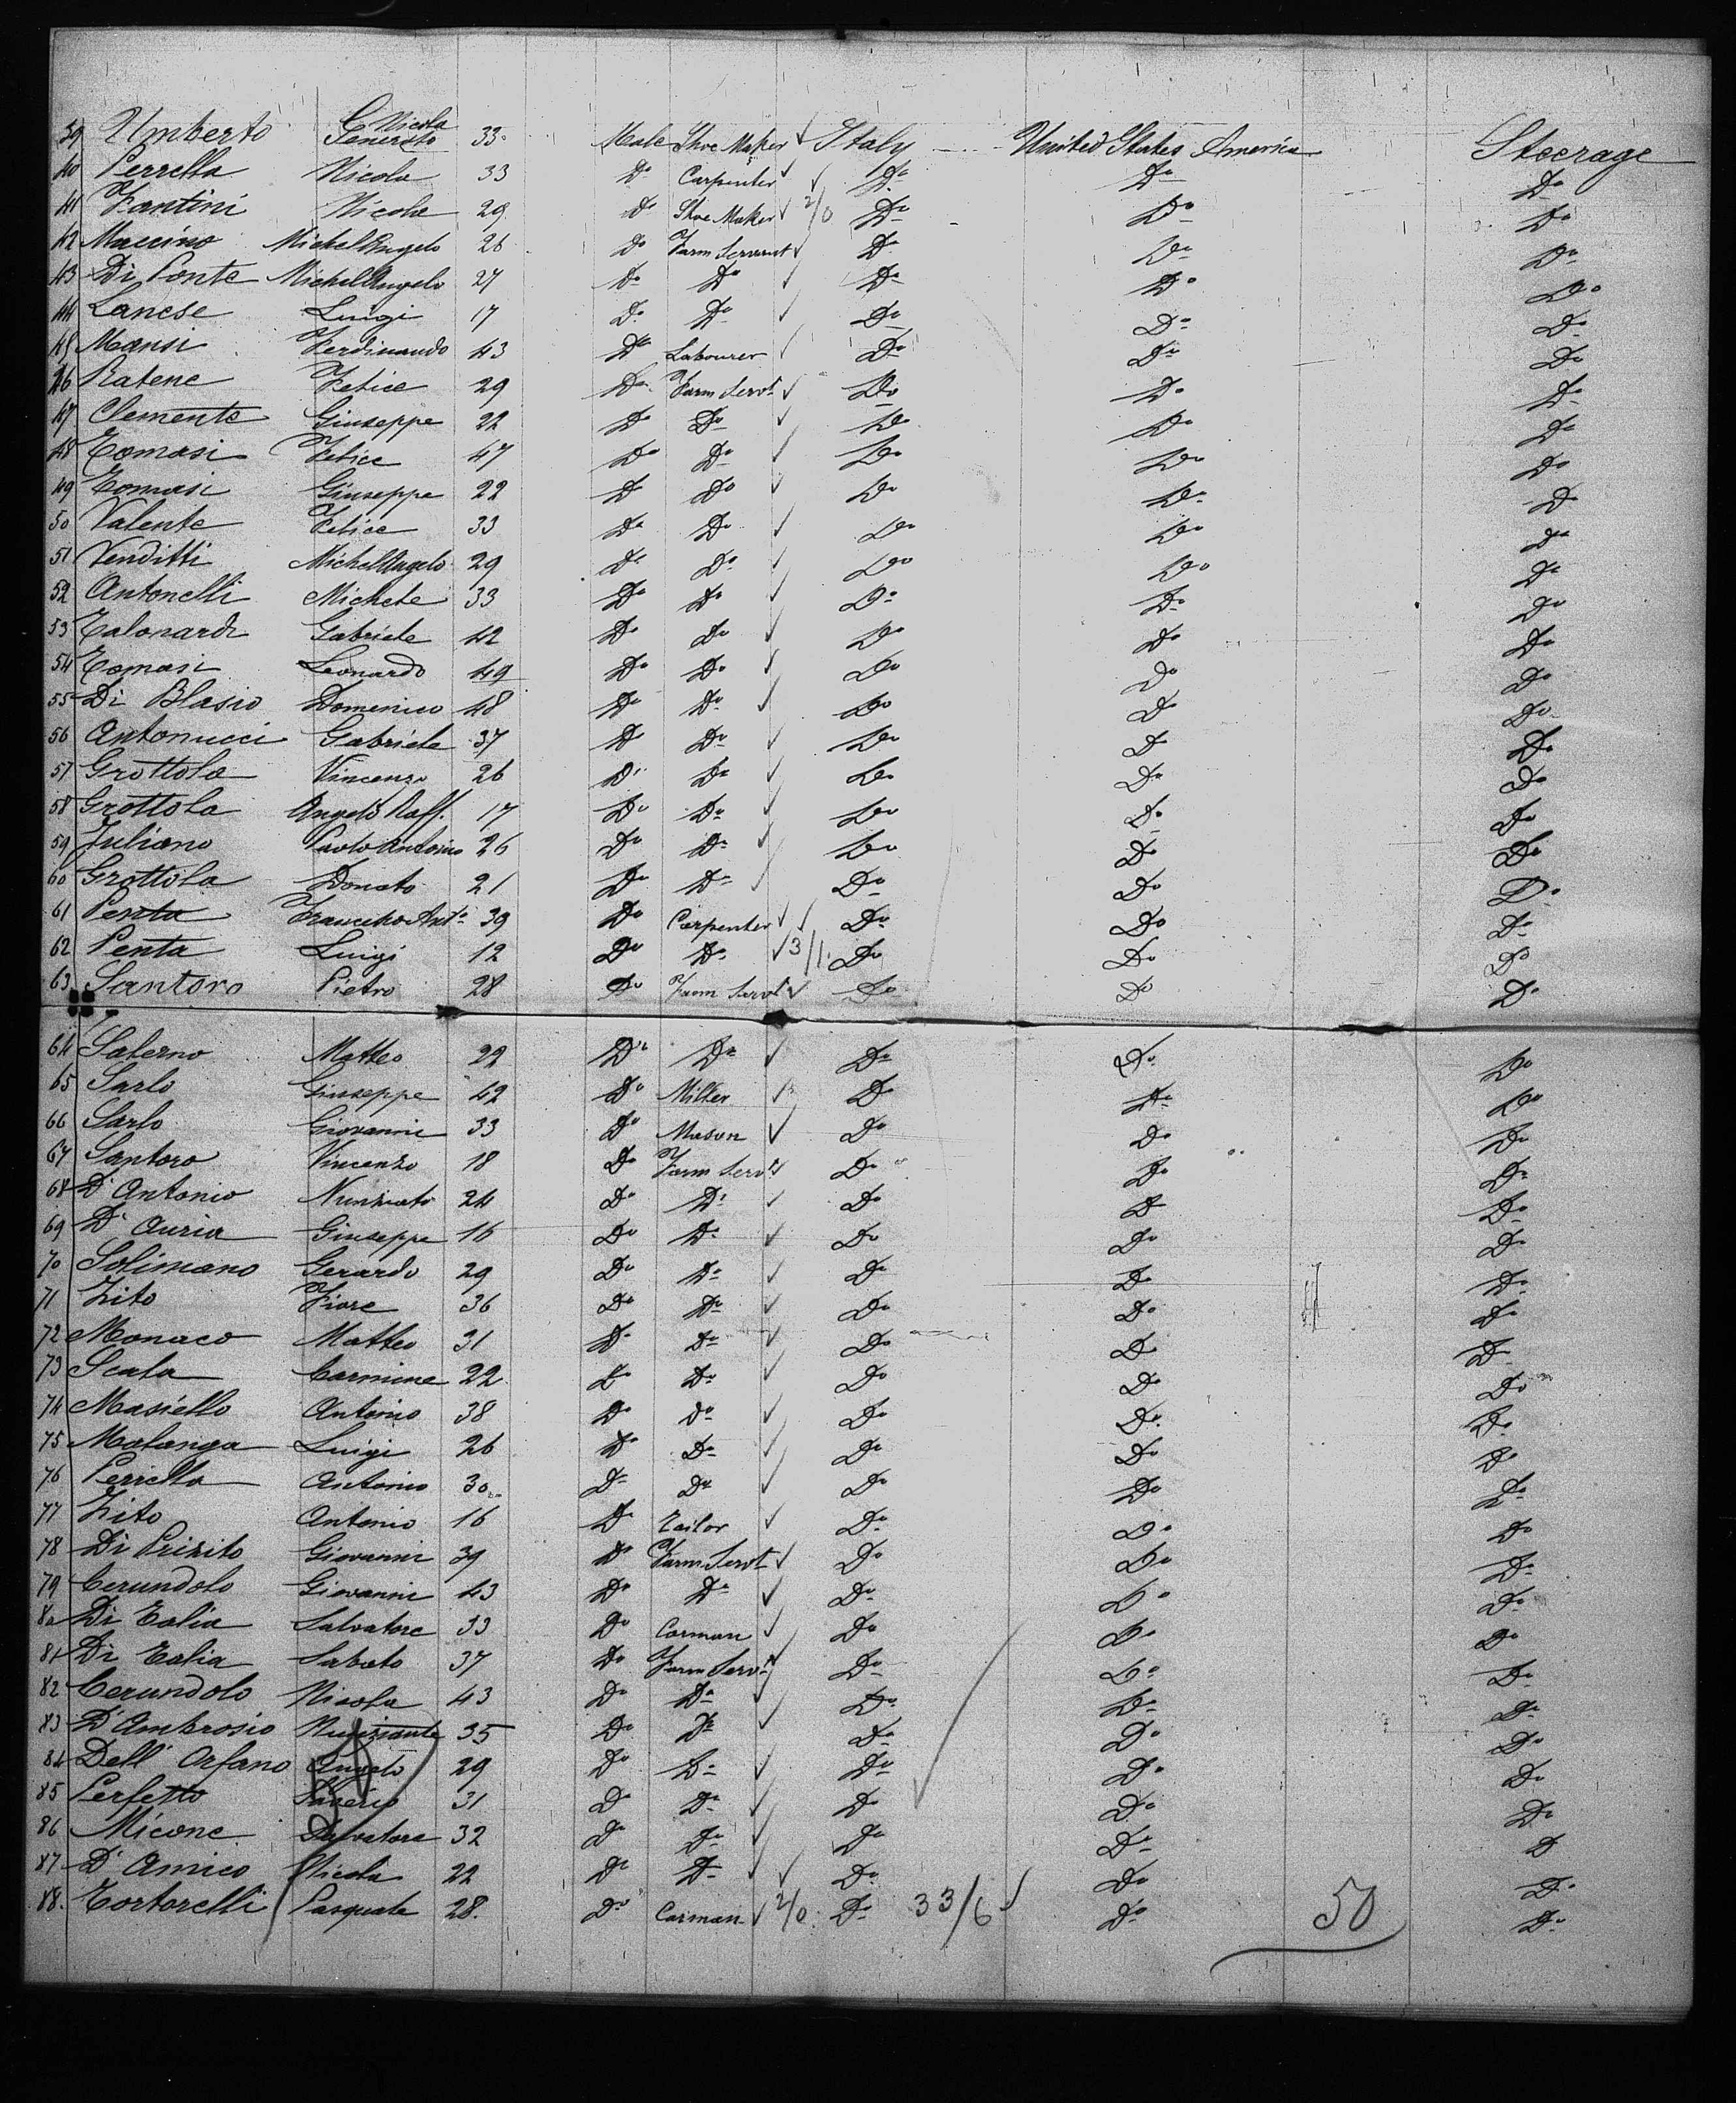 39 Umberto Nicola Generoso 33 Male Shoe Maker Italy United States America Steerage
40 Perrella Nicola 33 Do Carpenter Do Do Do
41 Fantini Nicola 29 Do Shoe Maker 2/0 Do Do Do
42 Maccino Michel Angelo 26 Do Farm Servant Do Do Do
43 Di Ponte Michel Angelo 27 Do Do Do Do Do
44 Lanese Luigi 17 Do Do Do Do Do
45 Mansi Ferdinando 43 Do Labourer Do Do Do
46 Ratene Felice 29 Do Farm Servt Do Do Do
47 Clemente Giuseppe 22 Do Do Do Do Do
48 Tomasi Felice 47 Do Do Do Do Do
49 Tomasi Giuseppe 22 Do Do Do Do Do
50 Valente Felice 33 Do Do Do Do Do
51 Venditti Michel Angelo 29 Do Do Do Do Do
52 Antonelli Michele 33 Do Do Do Do Do
53 Talonardi Gabriele 42 Do Do Do Do Do
54 Tomasi Leonardo 49 Do Do Do Do Do
55 Di Blasio Domenico 48 Do Do Do Do Do
56 Antonucci Gabriele 37 Do Do Do Do Do
57 Grottola Vincenzo 26 Do Do Do Do Do
58 Grottola Angelo Raff. 17 Do Do Do Do Do
59 Juliano Paolo Antonio 26 Do Do Do Do Do
60 Grottola Donato 21 Do Do Do Do Do
61 Penta Francesco Anto 39 Do Carpenter Do Do Do
62 Penta Luigi 12 Do Do 3/1 Do Do Do
63 Santoro Pietro 28 Do Farm Servt Do Do Do
64 Salerno Matteo 22 Do Do Do Do Do
65 Sarlo Giuseppe 42 Do Miller Do Do Do
66 Sarlo Giovanni 33 Do Mason Do Do Do
67 Santoro Vincenzo 18 Do Farm Servt Do Do Do
68 D'Antonio Nunziato 24 Do Do Do Do Do
69 D'Auria Giuseppe 16 Do Do Do Do Do
70 Solimano Gerardo 29 Do Do Do Do Do
71 Zito Fiore 36 Do Do Do Do Do
72 Monaco Matteo 31 Do Do Do Do Do
73 Scala Carmine 22 Do Do Do Do Do
74 Masiello Antonio 38 Do Do Do Do Do
75 Malanga Luigi 26 Do Do Do Do Do
76 Perrella Antonio 30 Do Do Do Do Do
77 Zito Antonio 16 Do Tailor Do Do Do
78 Di Prizito Giovanni 39 Do Farm Servt Do Do Do
79 Cerundolo Giovanni 43 Do Do Do Do Do
80 Di Talia Salvatore 33 Do Carman Do Do Do
81 Di Talia Sabato 37 Do Farm Servt Do Do Do
82 Cerundolo Nicola 43 Do Do Do Do Do
83 D'Ambrosio Nunziante 35 Do Do Do Do Do
84 Dell' Orfano Angelo 29 Do Do Do Do Do
85 Perfetto Saverio 31 Do Do Do Do Do
86 Micone Salvatore 32 Do Do Do Do Do
87 D'Amico Nicola 22 Do Do Do Do Do
88. Tortorelli Pasquale 28. Do Carman 2/0 Do 33/6 Do 50 Do